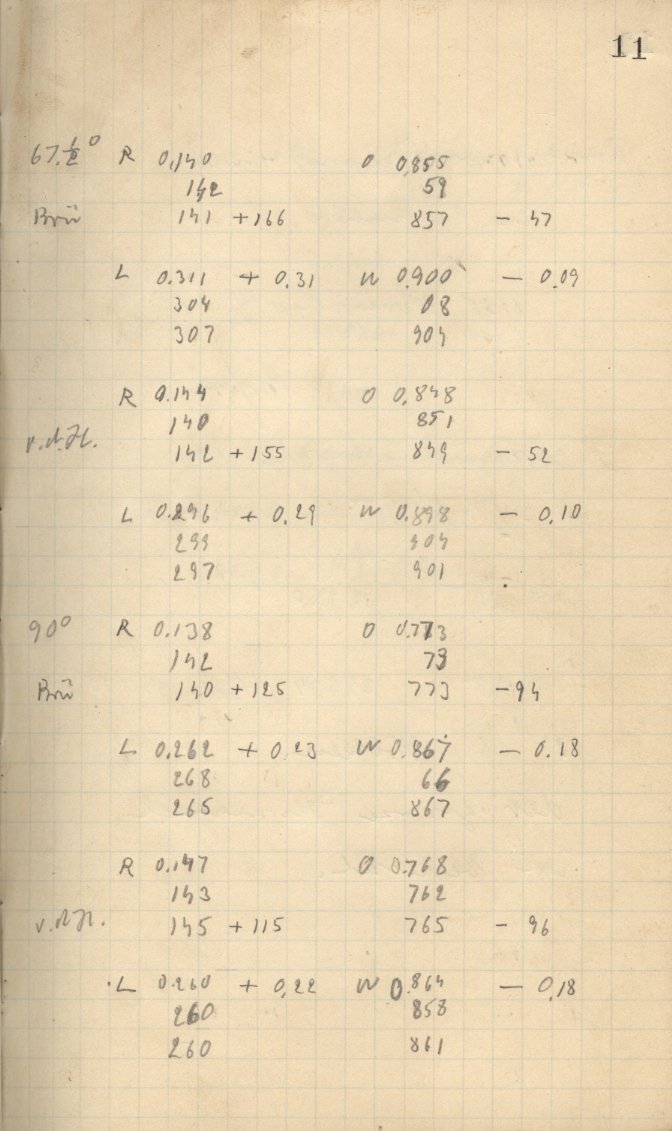 11
67.½° R 0,140 O 0,855
142 59
Brü 141 +166 857 - 47
L 0.311 + 0.31 W 0,900 - 0.09
304 08
307 904
R 0.144 O 0,848
140 851
v.d.H. 142 +155 849 - 52
L 0.296 + 0,29 W 0.898 - 0,10
299 904
297 901
90° R 0.138 O 0.773
142 73
Brü 140 +125 773 -94
L 0.262 + 0.23 W 0.867 - 0.18
268 66
265 867
R 0.147 O 0.768
143 762
v.d.H. 145 +115 765 - 96
L 0.260 + 0,22 W 0.864 - 0,18
260 858
260 861